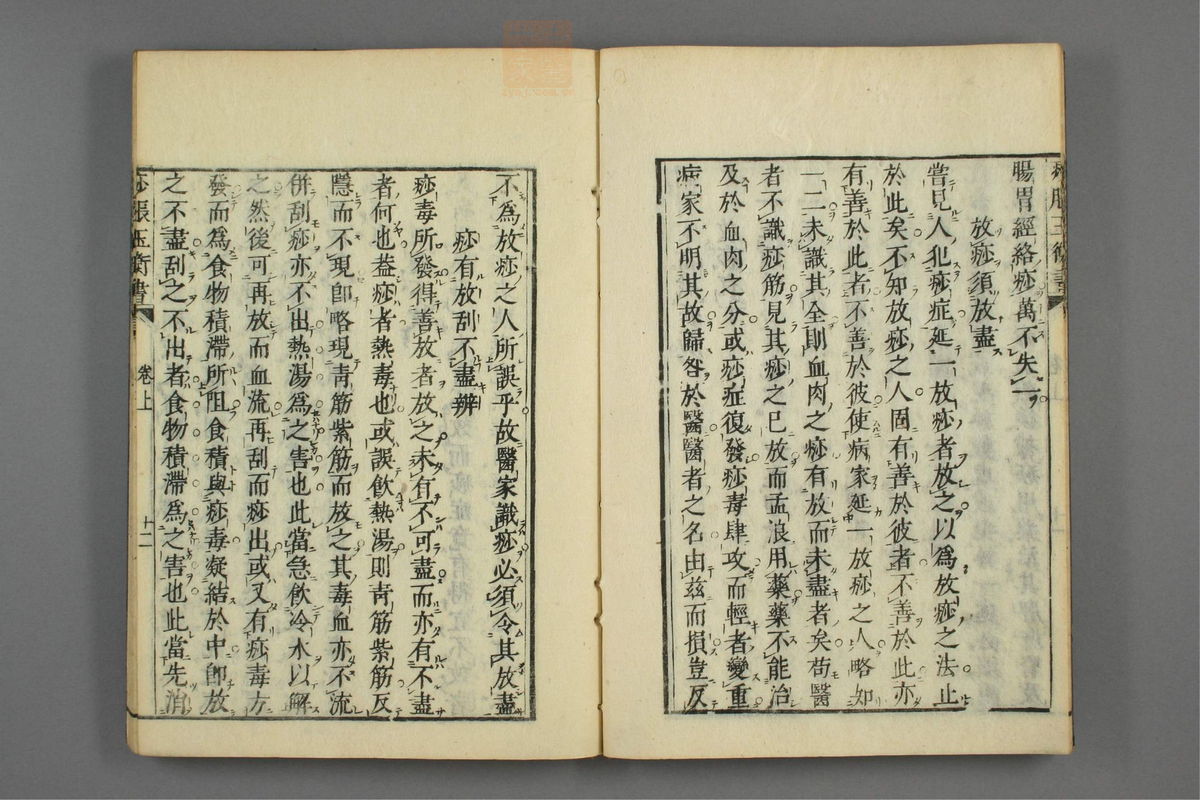 腸胃經絡痧萬不失一
放痧須放盡
嘗見人犯痧症延一放痧者放之以爲放痧之法止
於此矣不知放痧之人固有善於彼者不善於此亦
有善於此者不善於彼使病家延一放痧之人略知
一二未識其全則血肉之痧有放而未盡者矣苟醫
者不識痧筋見其痧之已放而孟浪用藥藥不能治
及於血肉之分或痧症復發痧毒肆攻而輕者變重
病家不明其故歸咎於醫醫者之名由茲而損豈反
不爲放痧之人所誤乎故醫家識痧必須令其放盡
痧有放刮不盡辨
痧毒所發得善放者放之未有不可盡而亦有不盡
者何也葢痧者熱毒也或誤飮熱湯則靑筋紫筋反
隱而不現卽略現靑筋紫筋而放之其毒血亦不流
併刮痧亦不出熱湯爲之害也此當急飮冷水以解
之然後可再放而血流再刮而痧出或又有痧毒方
發而爲食物積滯所阻食積與痧毒凝結於中卽放
之不盡刮之不出者食物積滯爲之害也此當先消
痧脹玉衡書
卷上
十二